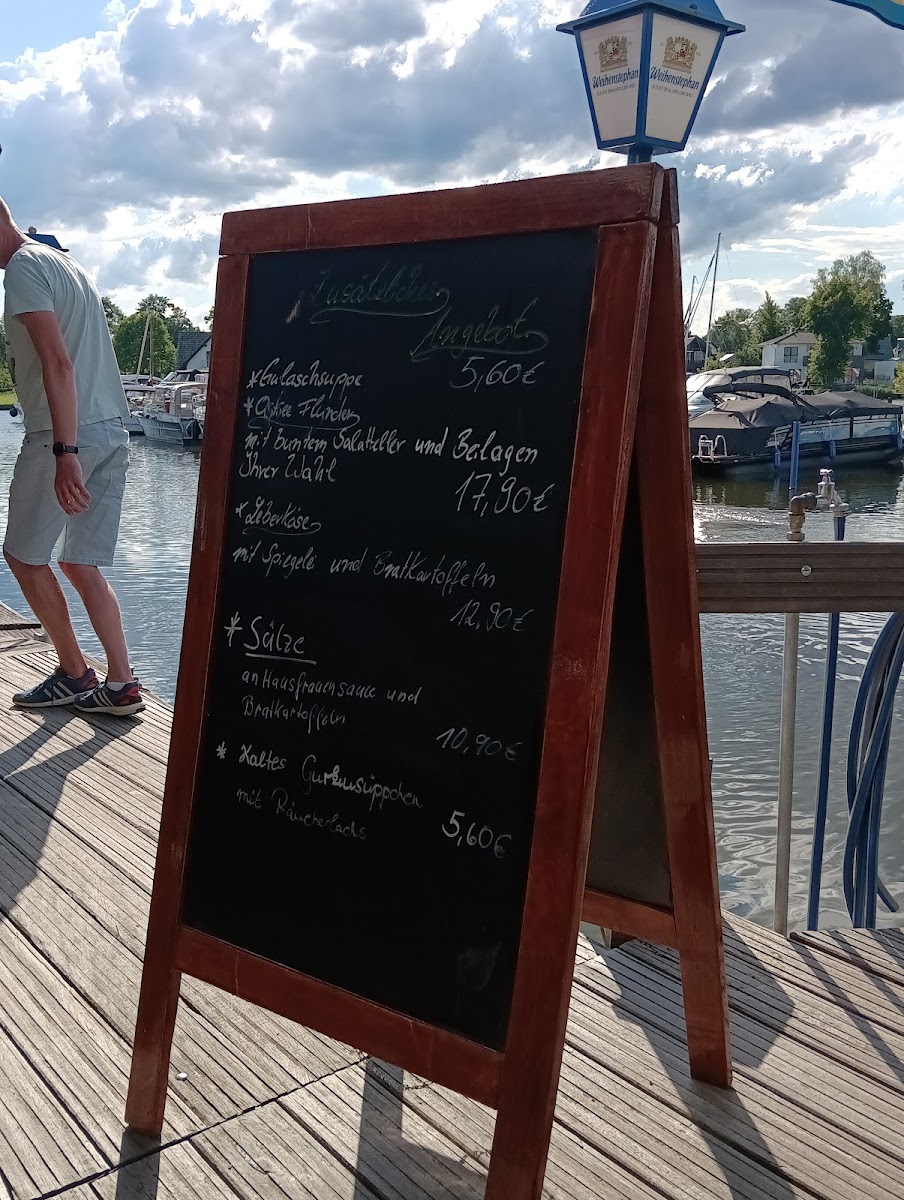 Weihenstephan
Weihenstephan
Zusätzliches
Angebot
*Gulaschsuppe 5,60€
*Ostsee Flunder
mit buntem Salatteller und Beilagen
Ihrer Wahl
17,90€
*Leberkäse
mit Spiegelei und Bratkartoffeln
12,90€
* Sülze
an Hausfrauensauce und
Bratkartoffeln
10,90€
* Kaltes Gurkensüppchen
mit Räucherlachs 5,60€